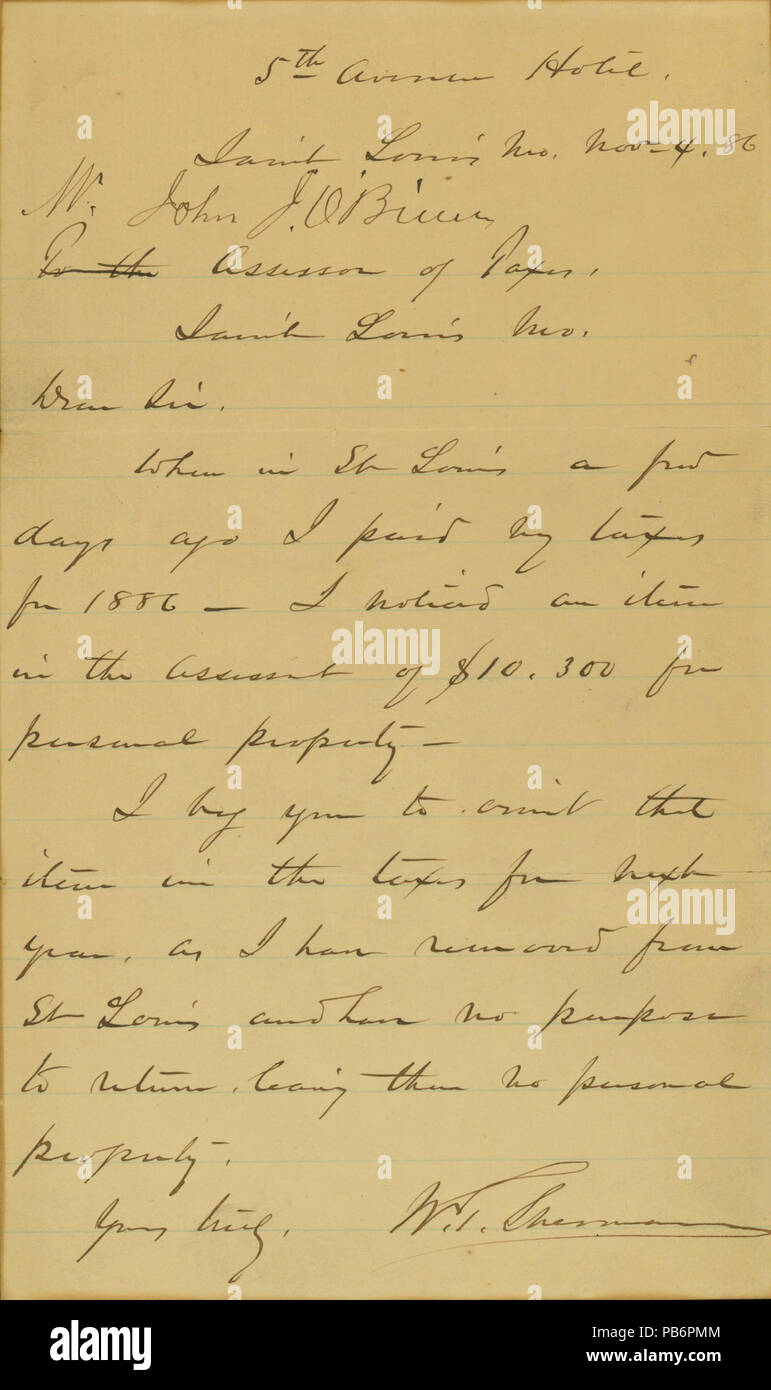 5th Avenue Hotel.
Saint Louis Mo. Nov. 4. 86
Mr. John J. O'Brien
To the Assessor of Taxes,
Saint Louis Mo.
Dear Sir.
When in St Louis a few
days ago I paid my taxes
for 1886 — I noticed an item
in the Assessmt of $10.300 for
personal property —
I beg you to omit that
item in the taxes for next
year, as I have removed from
St Louis and have no purpose
to return, leaving there no personal
property.
Yours truly, W. T. Sherman
alamy
Image ID: PB6PMM
www.alamy.com